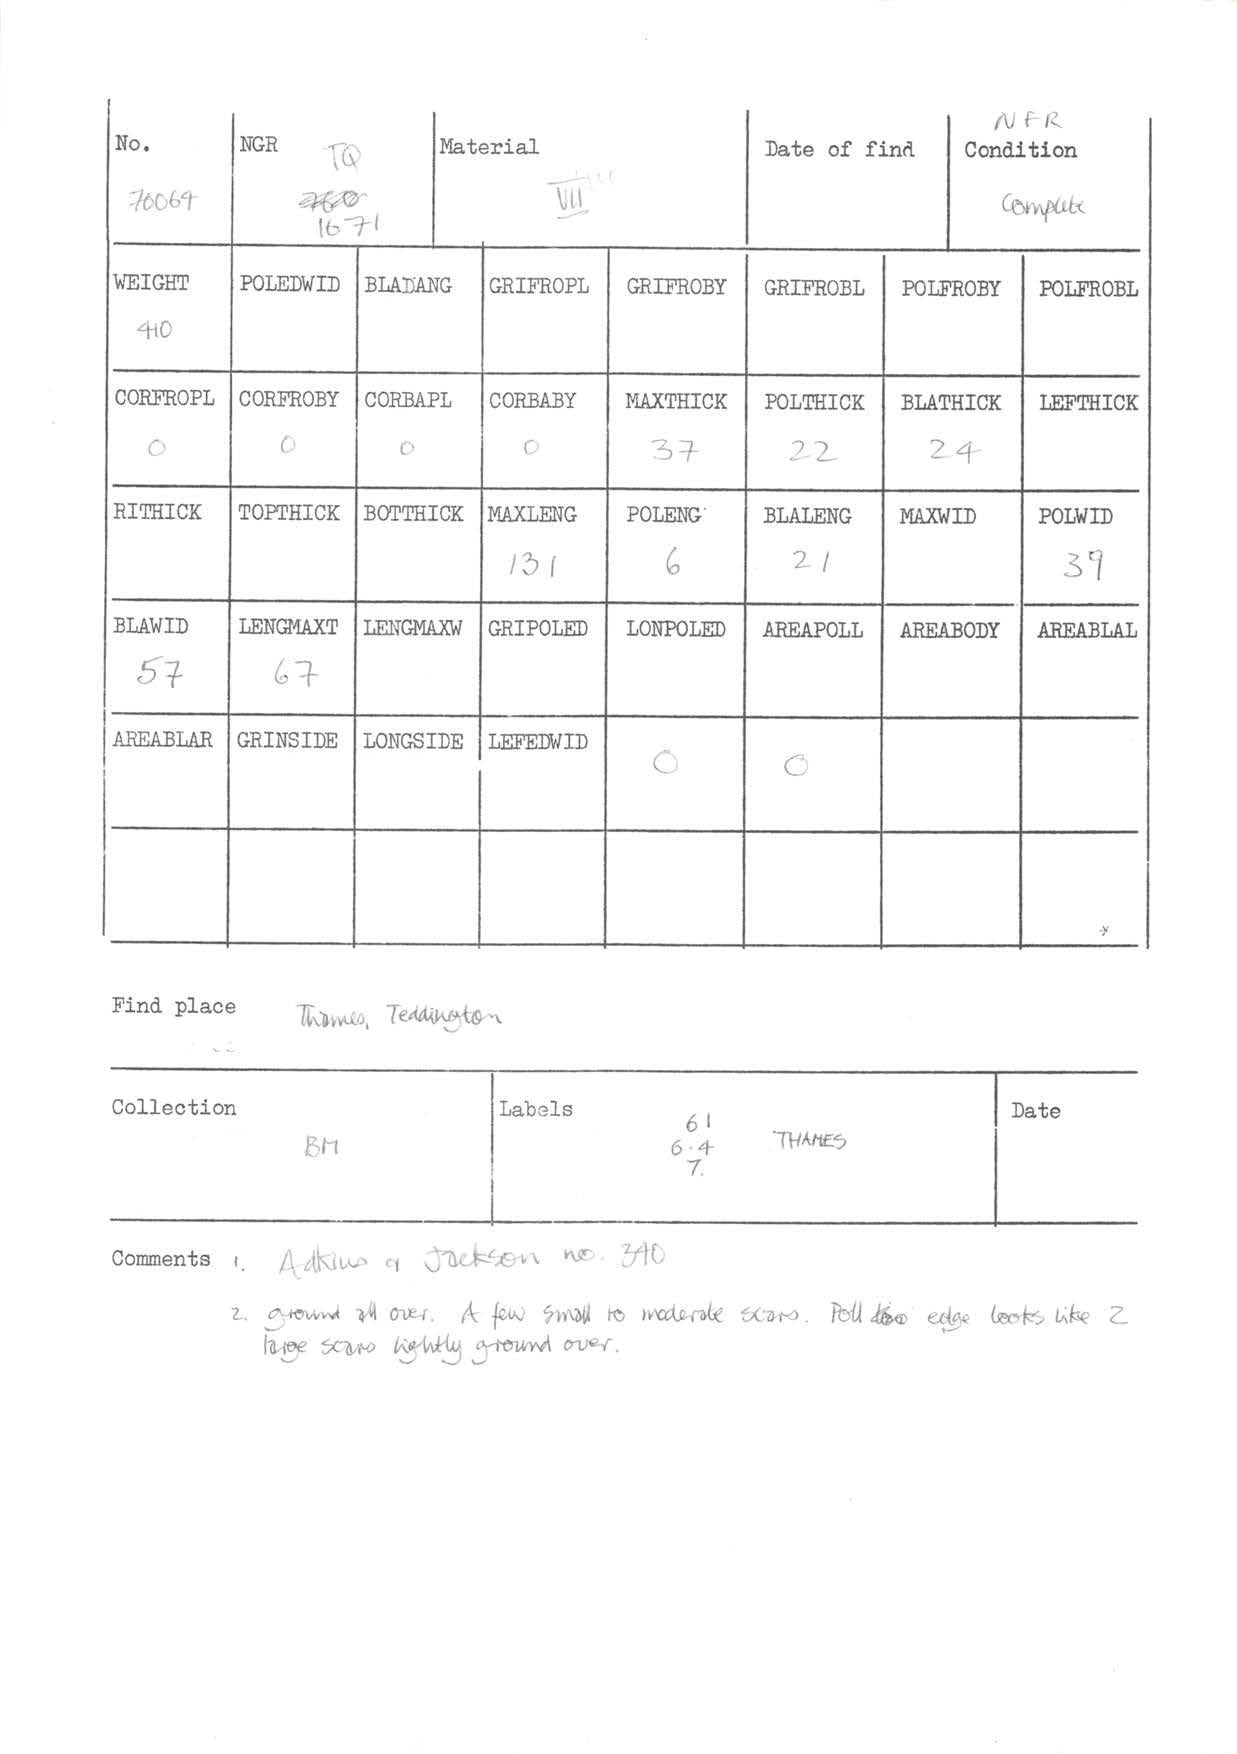 NFR
No. NGR Material Date of find Condition
TQ
70069 VII Complete
1671
WEIGHT POLEDWID BLADANG GRIFROPL GRIFROBY GRIFROBL POLFROBY POLFROBL
410
CORFROPL CORFROBY CORBAPL CORBABY MAXTHICK POLTHICK BLATHICK LEFTHICK
0 0 0 0 37 22 24
RITHICK TOPTHICK BOTTHICK MAXLENG POLENG BLALENG MAXWID POLWID
131 6 21 39
BLAWID LENGMAXT LENGMAXW GRIPOLED LONPOLED AREAPOLL AREABODY AREABLAL
57 67
AREABLAR GRINSIDE LONGSIDE LEFEDWID
0 0
Find place Thames, Teddington
Collection Labels Date
61
BM 6.4 THAMES
7.
Comments 1. Adkins & Jackson no. 340
2. ground all over. A few small to moderate scars. Poll edge looks like 2
large scars lightly ground over.